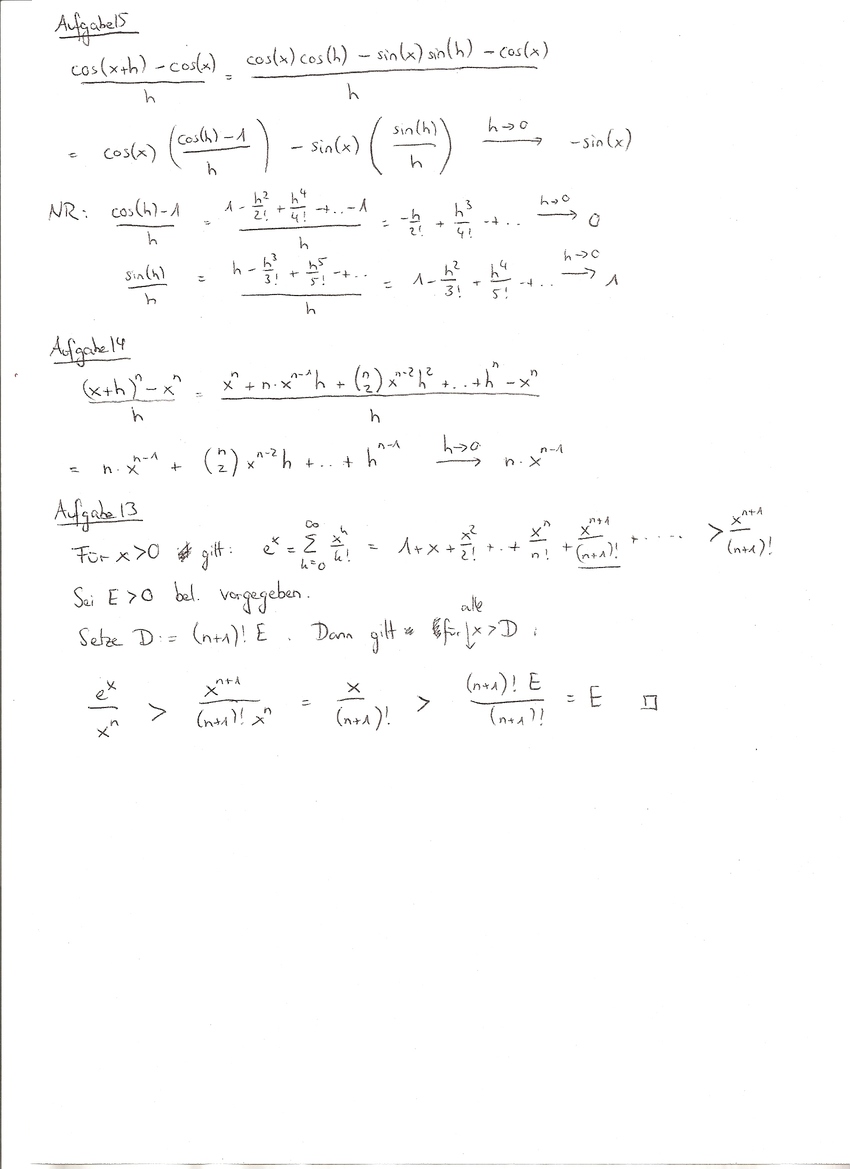 Aufgabe 15
(cos(x+h) - cos(x))/h = (cos(x) cos(h) - sin(x) sin(h) - cos(x))/h
= cos(x) ((cos(h)-1)/h) - sin(x) (sin(h)/h) →(h→0) -sin(x)
NR: (cos(h)-1)/h = (1 - h²/2! + h⁴/4! -+..-1)/h = -h/2! + h³/4! -+.. →(h→0) 0
sin(h)/h = (h - h³/3! + h⁵/5! -+..)/h = 1 - h²/3! + h⁴/5! -+.. →(h→0) 1
Aufgabe 14
((x+h)ⁿ - xⁿ)/h = (xⁿ + n·xⁿ⁻¹h + (n über 2) xⁿ⁻²h² +..+ hⁿ - xⁿ)/h
= n·xⁿ⁻¹ + (n über 2) xⁿ⁻²h +..+ hⁿ⁻¹ →(h→0) n·xⁿ⁻¹
Aufgabe 13
Für x>0 gilt: eˣ = ∑_{k=0}^{∞} xᵏ/k! = 1+x+x²/2!+..+xⁿ/n! + xⁿ⁺¹/(n+1)! + ..... > xⁿ⁺¹/(n+1)!
Sei E>0 bel. vorgegeben.
Setze D := (n+1)! E . Dann gilt für alle x>D :
eˣ/xⁿ > xⁿ⁺¹/((n+1)! xⁿ) = x/(n+1)! > (n+1)! E/(n+1)! = E □